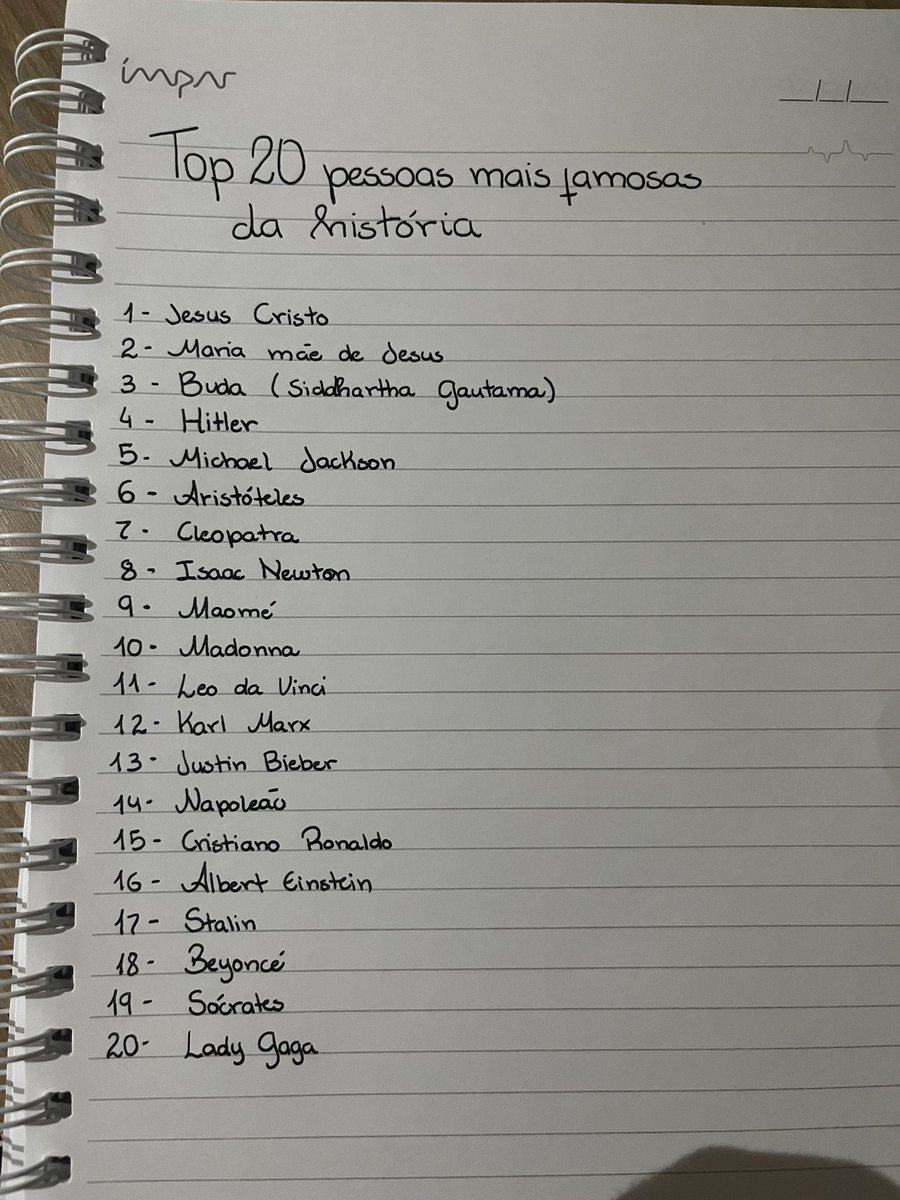 impar
__/__/__
Top 20 pessoas mais famosas
da história
1- Jesus Cristo
2- Maria mãe de Jesus
3 - Buda (Siddhartha Gautama)
4 - Hitler
5- Michael Jackson
6 - Aristóteles
7- Cleopatra
8 - Isaac Newton
9- Maomé
10- Madonna
11- Leo da Vinci
12- Karl Marx
13- Justin Bieber
14- Napoleão
15- Cristiano Ronaldo
16 - Albert Einstein
17- Stalin
18- Beyoncé
19 - Sócrates
20- Lady Gaga